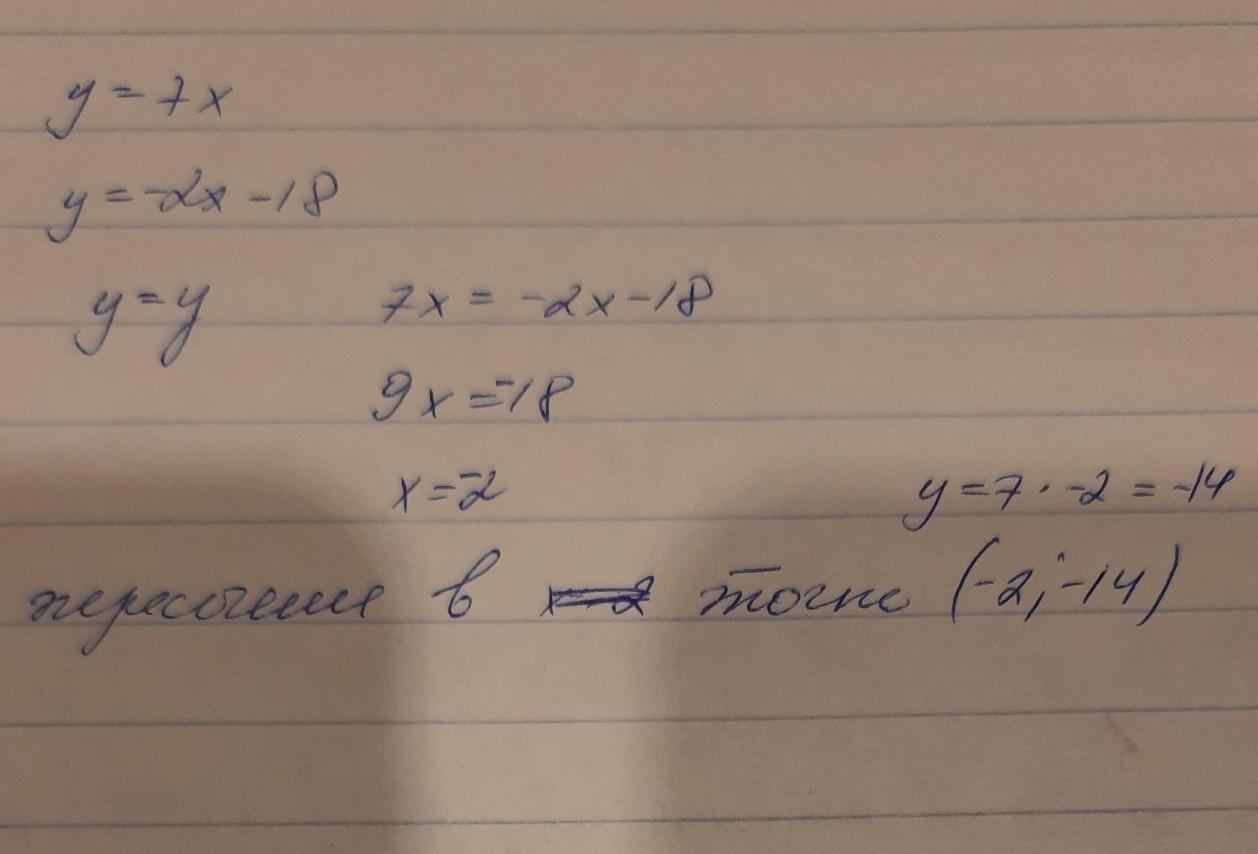 y = 7x
y = -2x - 18
y = y 7x = -2x - 18
9x = -18
x = -2 y = 7 · -2 = -14
пересечение в точке (-2; -14)